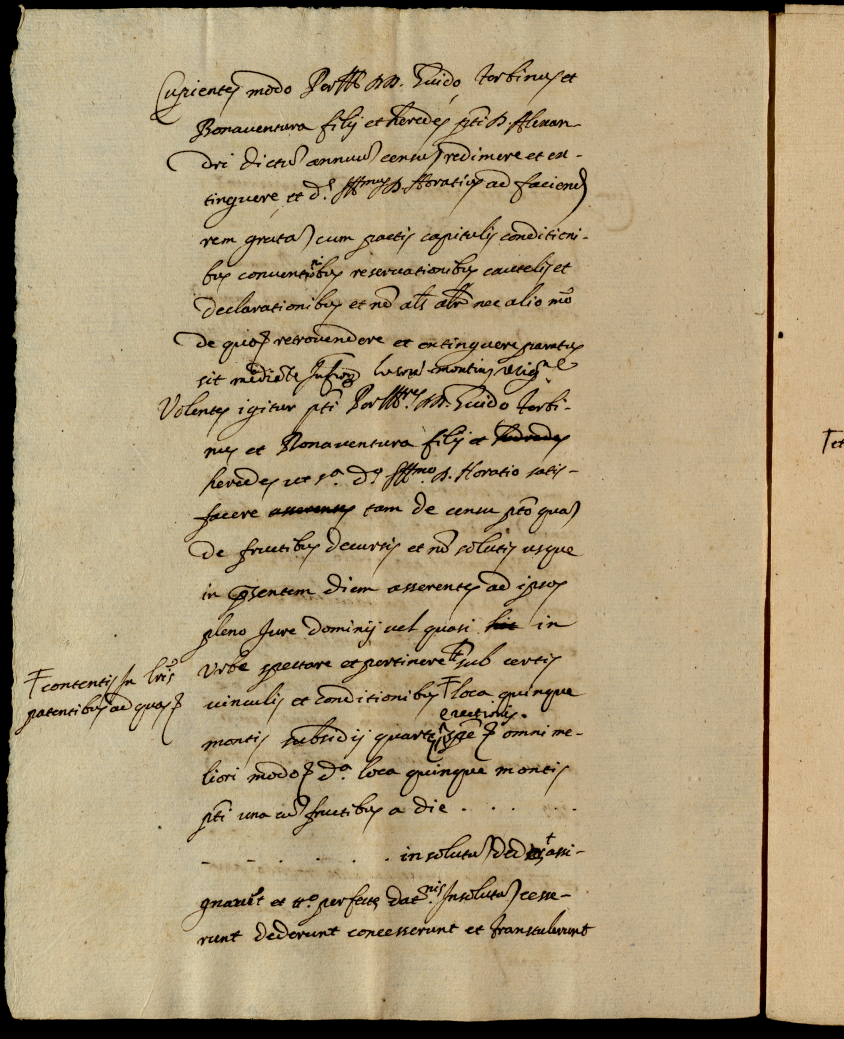 Cupientes modo Perill DD. Guido torbinus et
Bonaventura filij et heredes pti D. Alexan-
dri dictũ annuũ censũ redimere et ex-
tinguere et ds Illmus D. Horatius ad faciend
rem gratã cum pactis capitulis conditioni-
bus conventionibus reservationibus cautelis et
declarationibus et nõ als alr nec alio mõ
de quo retrovendere et extinguere paratus
sit mediãte
Volentes igitur pti Perillres DD. Guido torbi-
nus et Bonaventura filij et heredes
heredes ut sa do Illmo D. Horatio satis-
facere asserentes tam de censu pto quã
de fructibus decursis et nõ solutis usque
in pñsentem diem asserentes ad ipsos
pleno Jure dominij vel quasi hic in
Urbe spectare et pertinere sub certis
vinculis et conditionibus loca quinque
contentis in lris
patentibus ad quas
erectionis
montis subsidij quarte omni me-
liori modo da loca quinque montis
pti una cũ fructibus a die . . . .
- . . . . . . in solutũ ded assi-
gnavet et perfecte in solutũ cesse-
runt dederunt concesserunt et transtulerunt
et